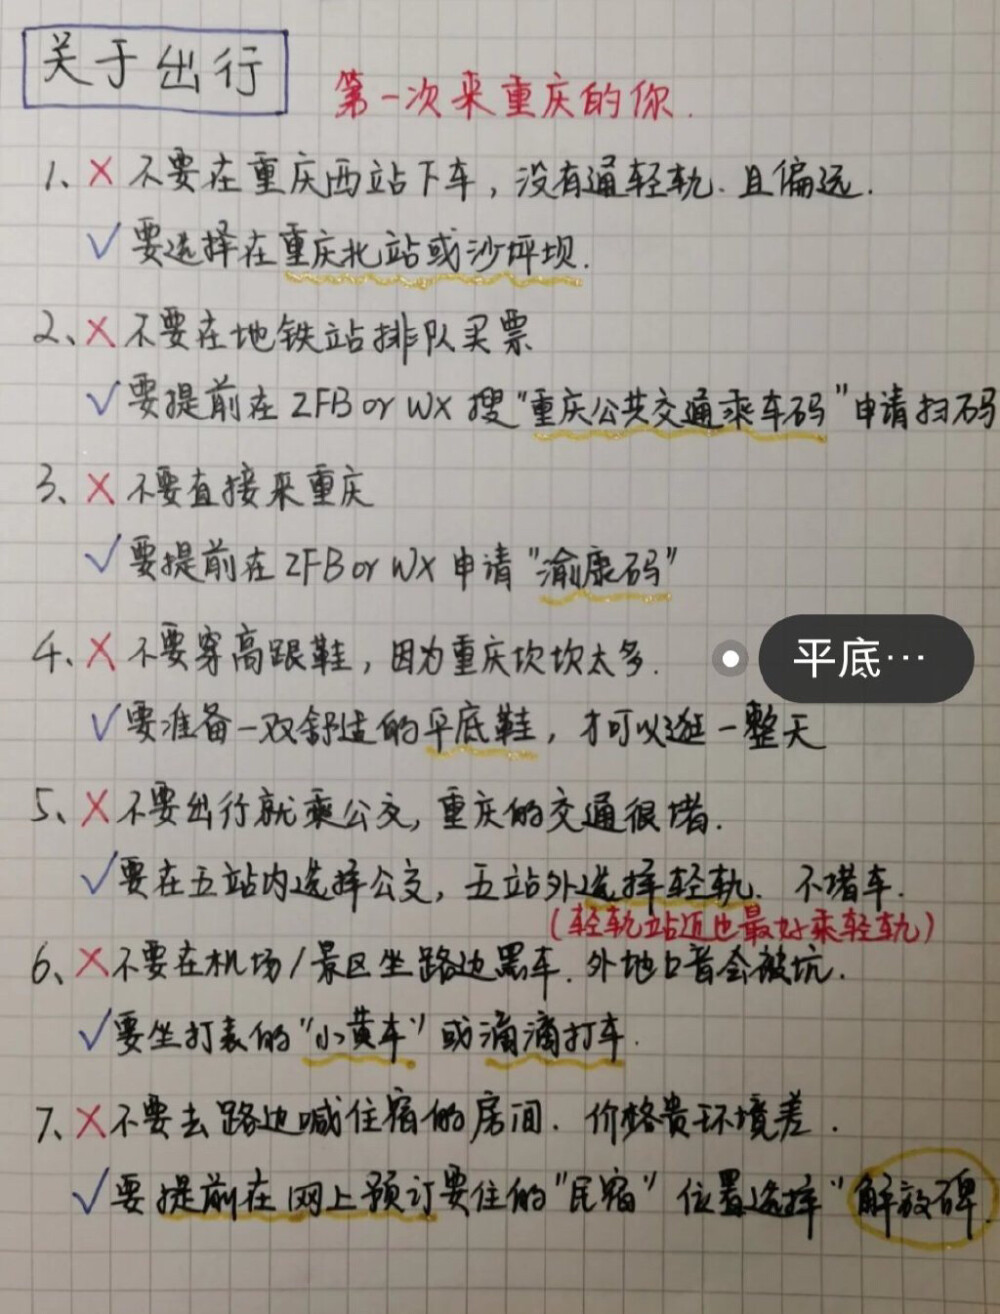 关于出行
第一次来重庆的你.
1、×不要在重庆西站下车，没有通轻轨.且偏远.
√要选择在重庆北站或沙坪坝.
2、×不要在地铁站排队买票
√要提前在ZFB or WX 搜“重庆公共交通乘车码”申请扫码
3、×不要直接来重庆
√要提前在ZFB or WX 申请“渝康码”
4、×不要穿高跟鞋，因为重庆坎坎太多.
平底…
√要准备一双舒适的平底鞋，才可以逛一整天
5、×不要出行就乘公交，重庆的交通很堵.
√要在五站内选择公交，五站外选择轻轨.不堵车.
(轻轨站近也最好乘轻轨)
6、×不要在机场/景区坐路边黑车.外地口音会被坑.
√要坐打表的“小黄车”或滴滴打车.
7、×不要去路边喊住宿的房间.价格贵环境差.
√要提前在网上预订要住的“民宿”位置选择“解放碑